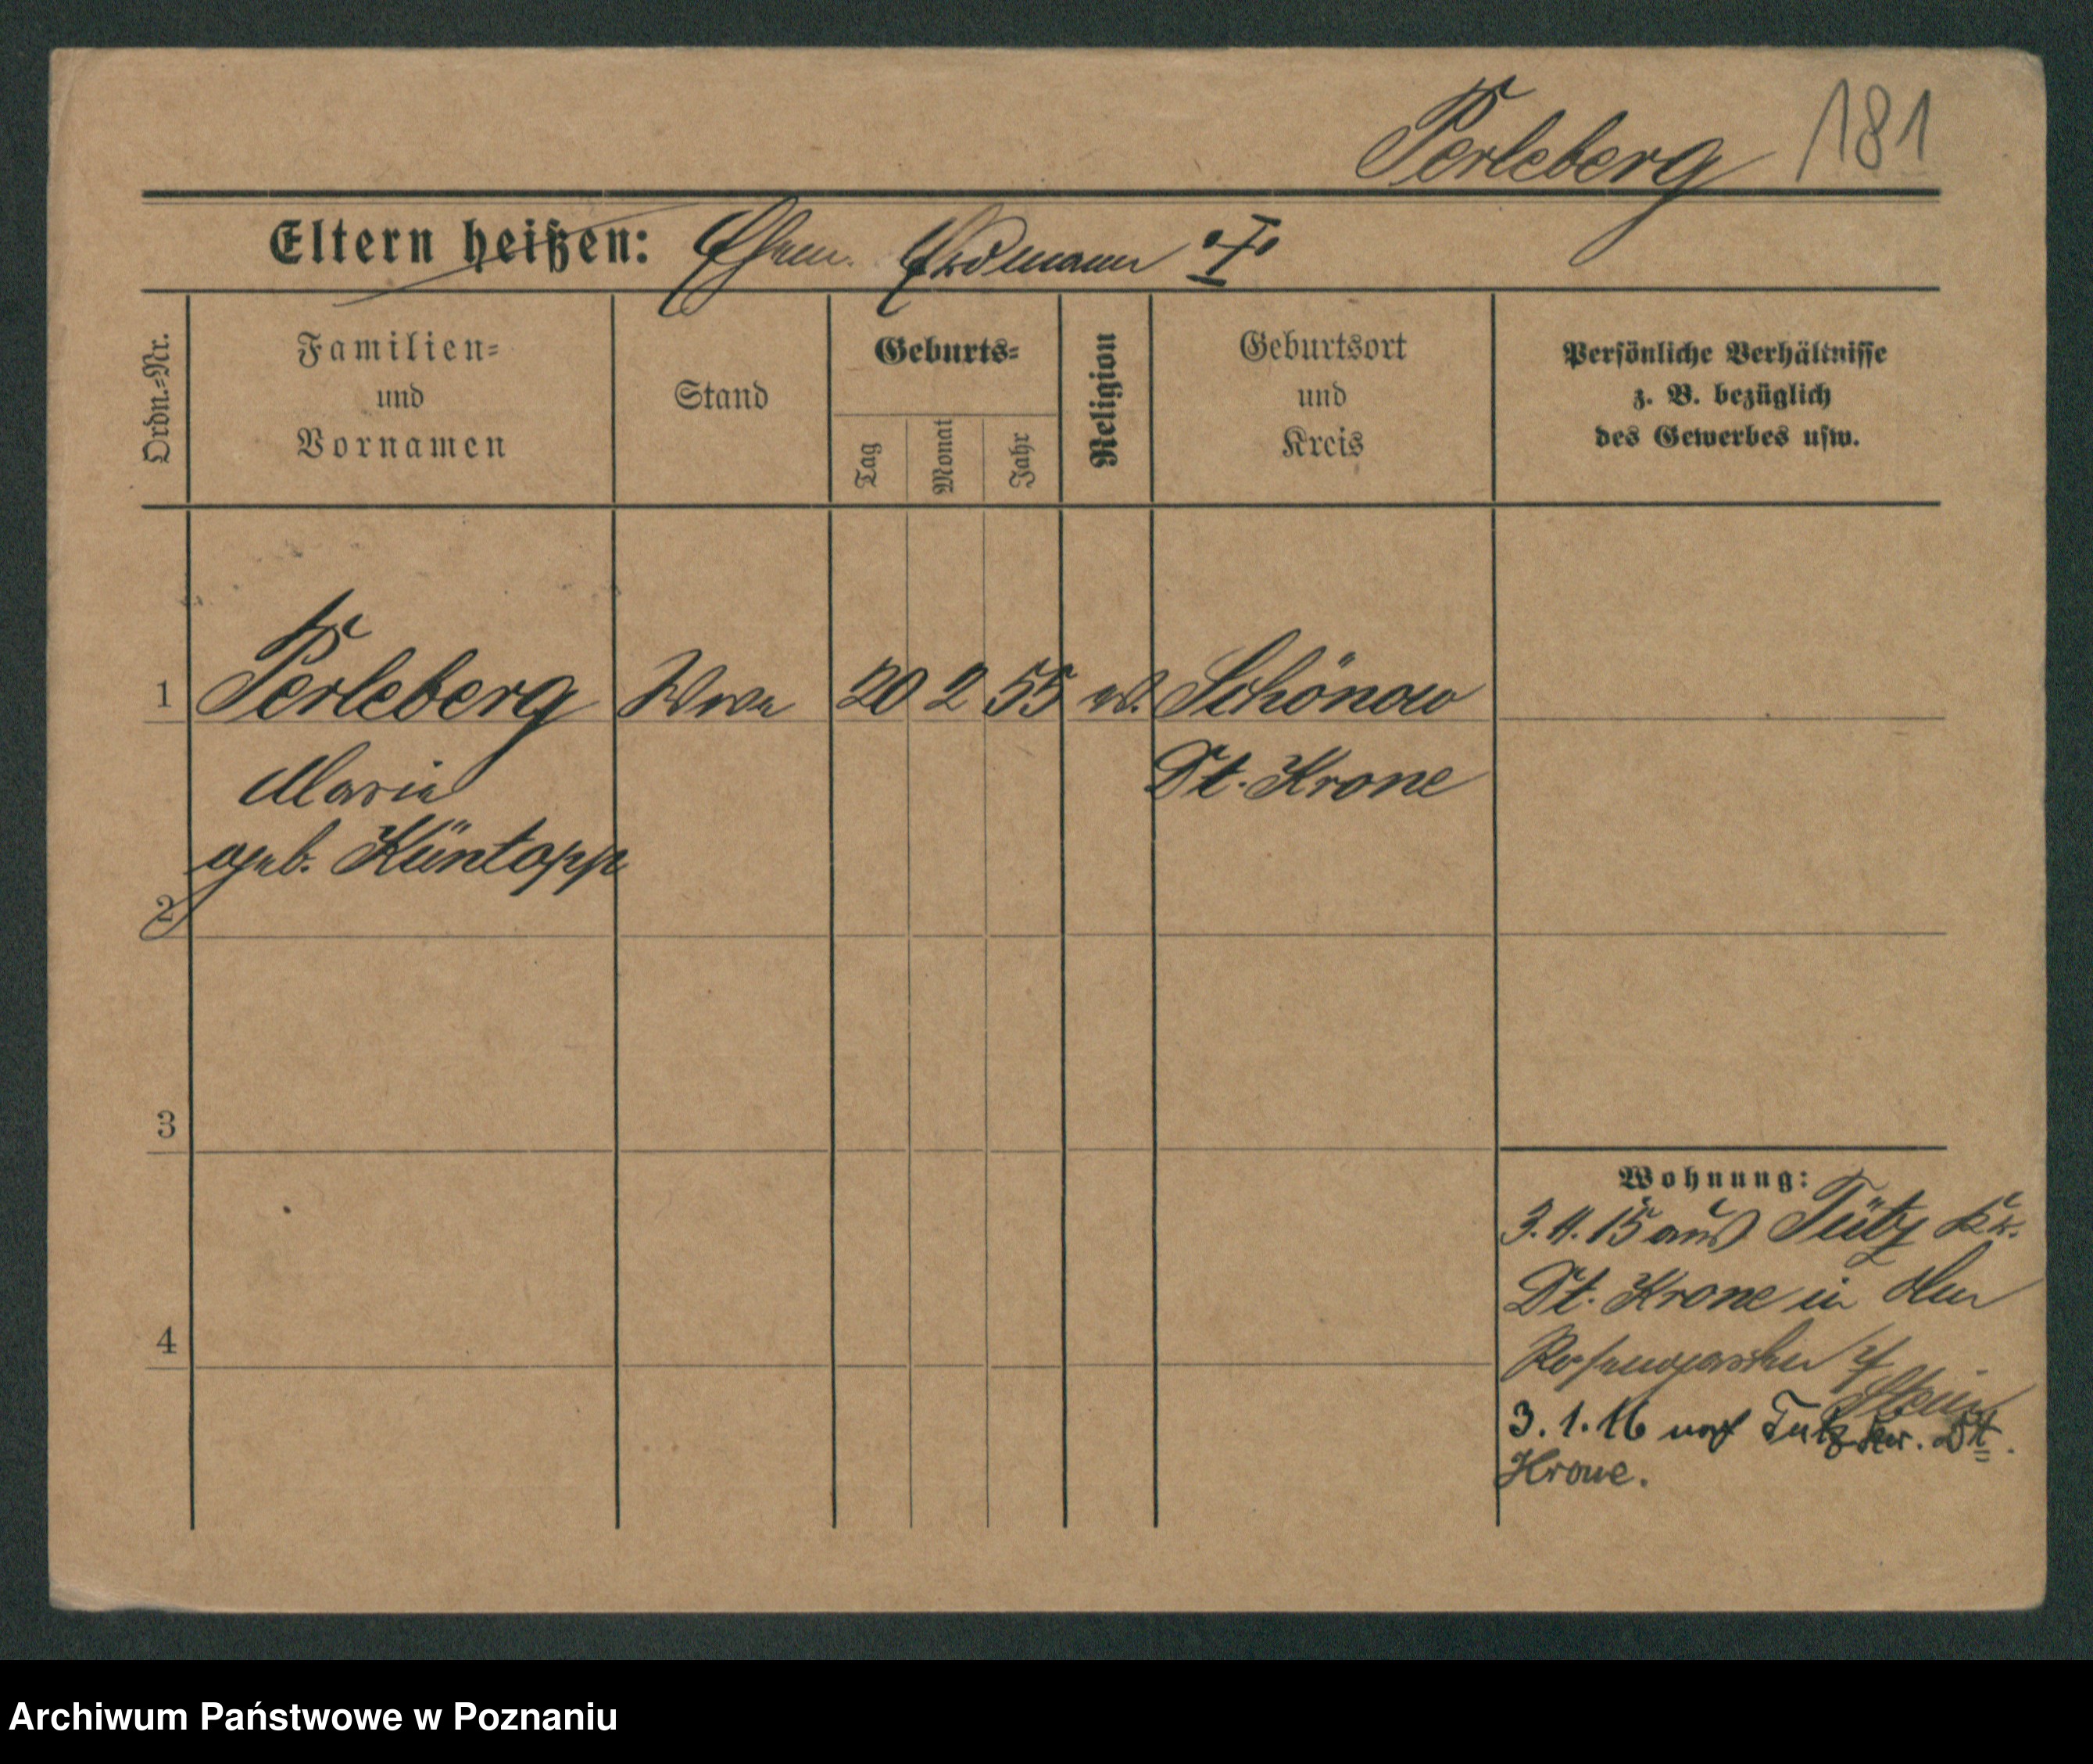 Perleberg 181
Eltern heißen: Ehem. Erdmann
Ordn.-Nr.
Familien=
und
Vornamen
Stand
Geburts=
Tag
Monat
Jahr
Religion
Geburtsort
und
Kreis
Persönliche Verhältnisse
z. B. bezüglich
des Gewerbes usw.
1 Perleberg Wwe 20 2 55 ev. Schönow
Maria Dt. Krone
geb. Küntopp
2
3
Wohnung:
3.4.15 aus Tütz Kr.
Dt. Krone in
4
3.1.16 nach Tütz Kr. Dt.
Krone.
Archiwum Państwowe w Poznaniu